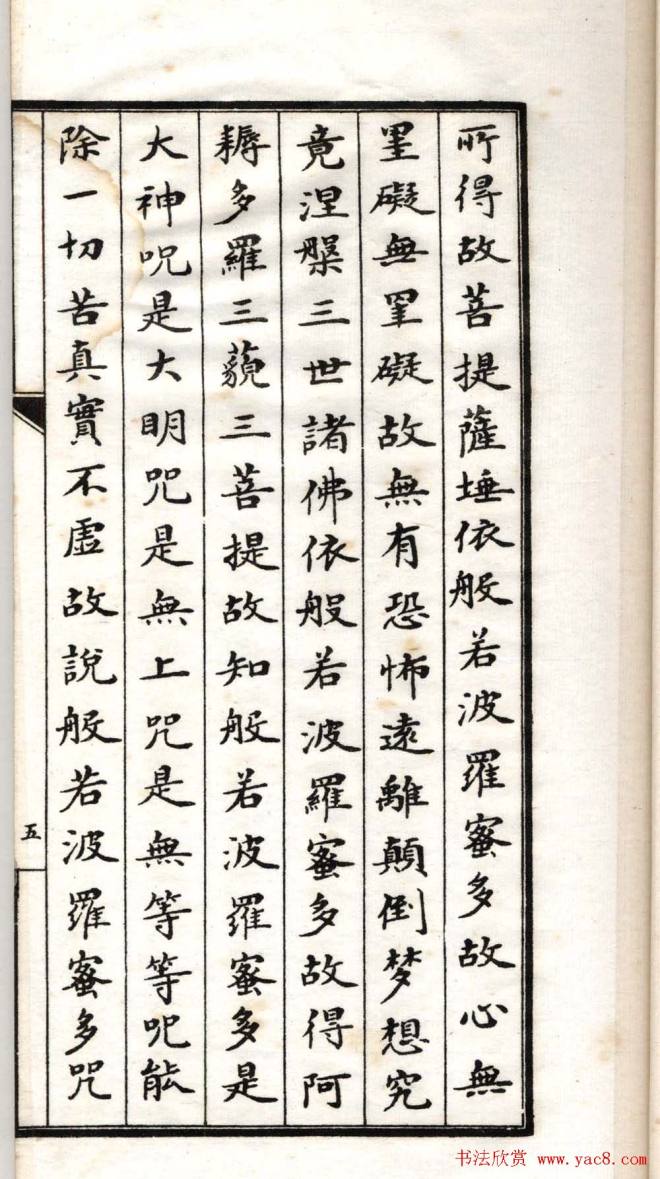 所得故菩提薩埵依般若波羅蜜多故心無
罣礙無罣礙故無有恐怖遠離顛倒梦想究
竟涅槃三世諸佛依般若波羅蜜多故得阿
耨多羅三藐三菩提故知般若波羅蜜多是
大神呪是大明咒是無上咒是無等等呪能
除一切苦真實不虛故說般若波羅蜜多咒
五
书法欣赏 www.yac8.com